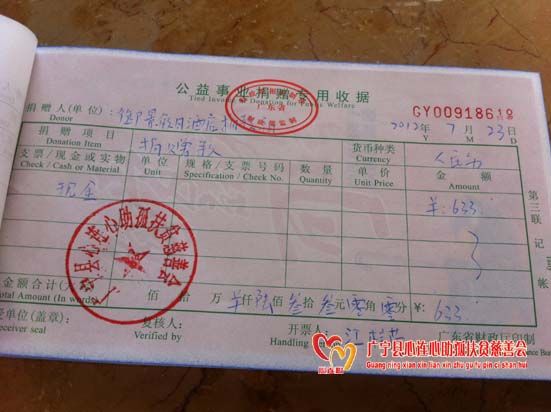 公益事业捐赠专用收据
Tied Income Donation for Public Welfare
捐赠人(单位):
Donor
GY00918618
2012 年 7 月 23 日
Y M D
捐赠项目
Donation Item
捐赠款
货币种类
Currency
人民币
支票/现金或实物
Check / Cash or Material
单位
Unit
规格/支票号码
Specification / Check No.
数量
Quantity
单价
Unit Price
金额
Amount
现金
¥:633
第三联 记帐
广宁县心连心助孤扶贫慈善会
金额合计
Total Amount (In words)
佰 拾 万 仟 陆 佰 叁 拾 叁 元 零 角 零 分 ¥: 633
单位(盖章):
Receiver seal
复核人:
Verified
开票人:
Handling
广东省财政厅印制
广宁县心连心助孤扶贫慈善会
Guang ning xian xin lian xin zhu gu fu pin ci shan hui